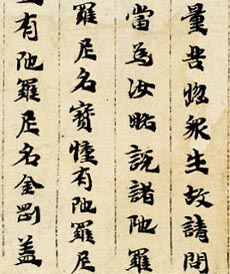 量衆生故請問
當為汝略說諸陁羅
羅尼名寶幢有陁羅尼
有陁羅尼名金剛蓋